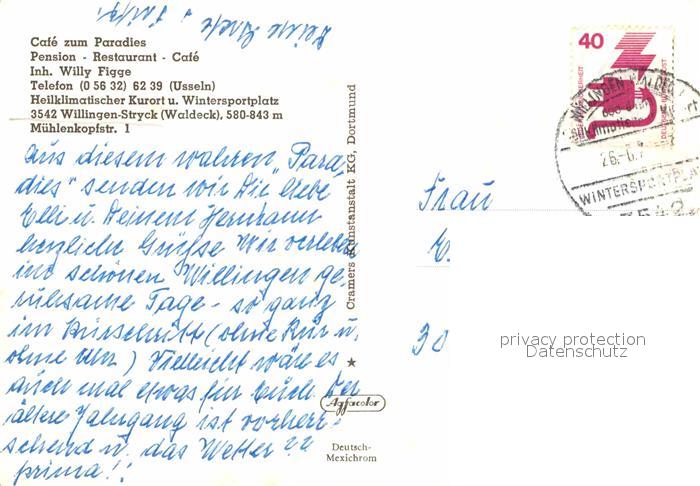 Café zum Paradies
Pension - Restaurant - Café
Inh. Willy Figge
Telefon (0 56 32) 62 39 (Usseln)
Heilklimatischer Kurort u. Wintersportplatz
3542 Willingen-Stryck (Waldeck), 580-843 m
Mühlenkopfstr. 1
Aus diesem wahren "Para-
dies" senden wir Dir liebe
Elli u. Deinem Hermann
herzliche Grüße Wir verleben
im schönen Willingen ge-
ruhsame Tage - so ganz
im Kurschnitt (ohne Kur u.
ohne Uhr) Vielleicht wäre es
auch mal etwas für Euch Der
ältere Jahrgang ist vorherr-
schend u. das Wetter ??
prima!!
Deine
Cramers Kunstanstalt KG, Dortmund
Agfacolor
Deutsch-
Mexichrom
40
DEUTSCHE BUNDESPOST
WILLINGEN
26.-6.7
WINTERSPORTPLA
3542
Frau
E.
30
privacy protection
Datenschutz